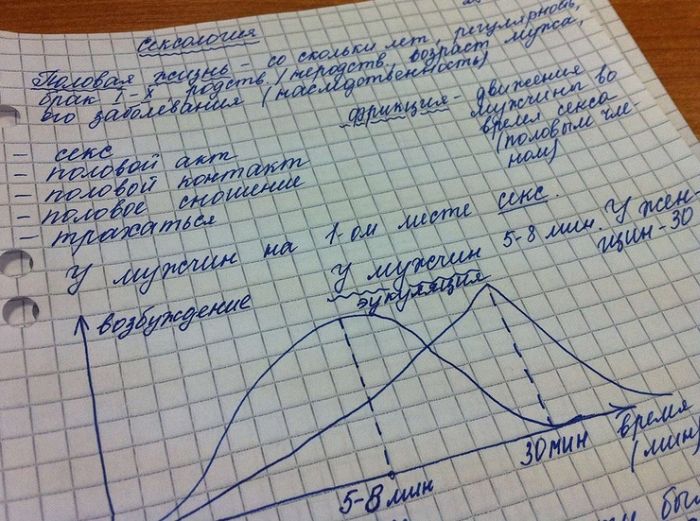 Сексология
Половая жизнь – со скольки лет, регулярность,
брак I-й родств./неродств., возраст мужа,
его заболевания (наследственность)
фрикция - движения
мужчины во
время секса
(половым чле-
ном)
– секс
– половой акт
– половой контакт
– половое сношение
– трахаться
У мужчин на 1-ом месте секс.
У мужчин 5-8 мин. У жен-
щин-30
эукуляция
возбуждение
5-8 мин
30 мин
время
(мин)